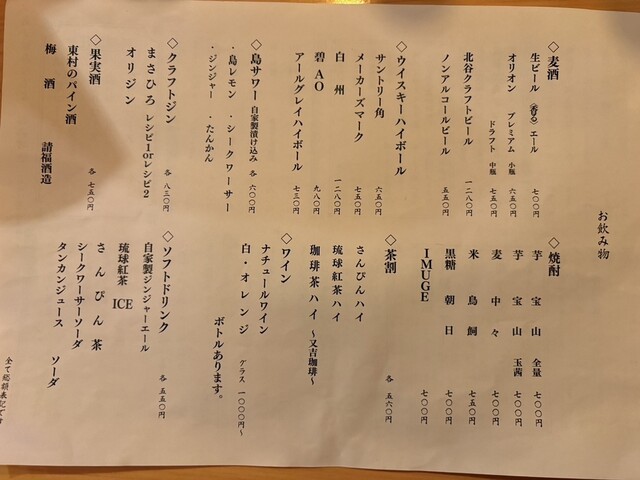 お飲み物
◇麦酒
生ビール 〈香る〉エール 七〇〇円
オリオン プレミアム 小瓶 六五〇円
ドラフト 中瓶 七五〇円
北谷クラフトビール 一二八〇円
ノンアルコールビール 五五〇円
◇ウイスキーハイボール
サントリー角 六五〇円
メーカーズマーク 七五〇円
白州 一二八〇円
碧AO 九八〇円
アールグレイハイボール 七三〇円
◇島サワー 自家製漬け込み 各 六〇〇円
・島レモン ・シークワーサー
・ジンジャー ・たんかん
◇クラフトジン 各 八三〇円
まさひろ レシピ1orレシピ2
オリジン
◇果実酒 各 七五〇円
東村のパイン酒
梅酒 請福酒造
◇焼酎
芋 宝山 全量 七〇〇円
芋 宝山 玉茜 七〇〇円
麦 中々 七〇〇円
米 鳥飼 七五〇円
黒糖 朝日 七〇〇円
IMUGE 七〇〇円
◇茶割 各 五六〇円
さんぴんハイ
琉球紅茶ハイ
珈琲茶ハイ ～又吉珈琲～
◇ワイン
ナチュールワイン
白・オレンジ グラス 一〇〇〇円～
ボトルあります。
◇ソフトドリンク 各 五五〇円
自家製ジンジャーエール
琉球紅茶 ICE
さんぴん茶
シークワーサーソーダ
タンカンジュース ソーダ
全て総額表記です